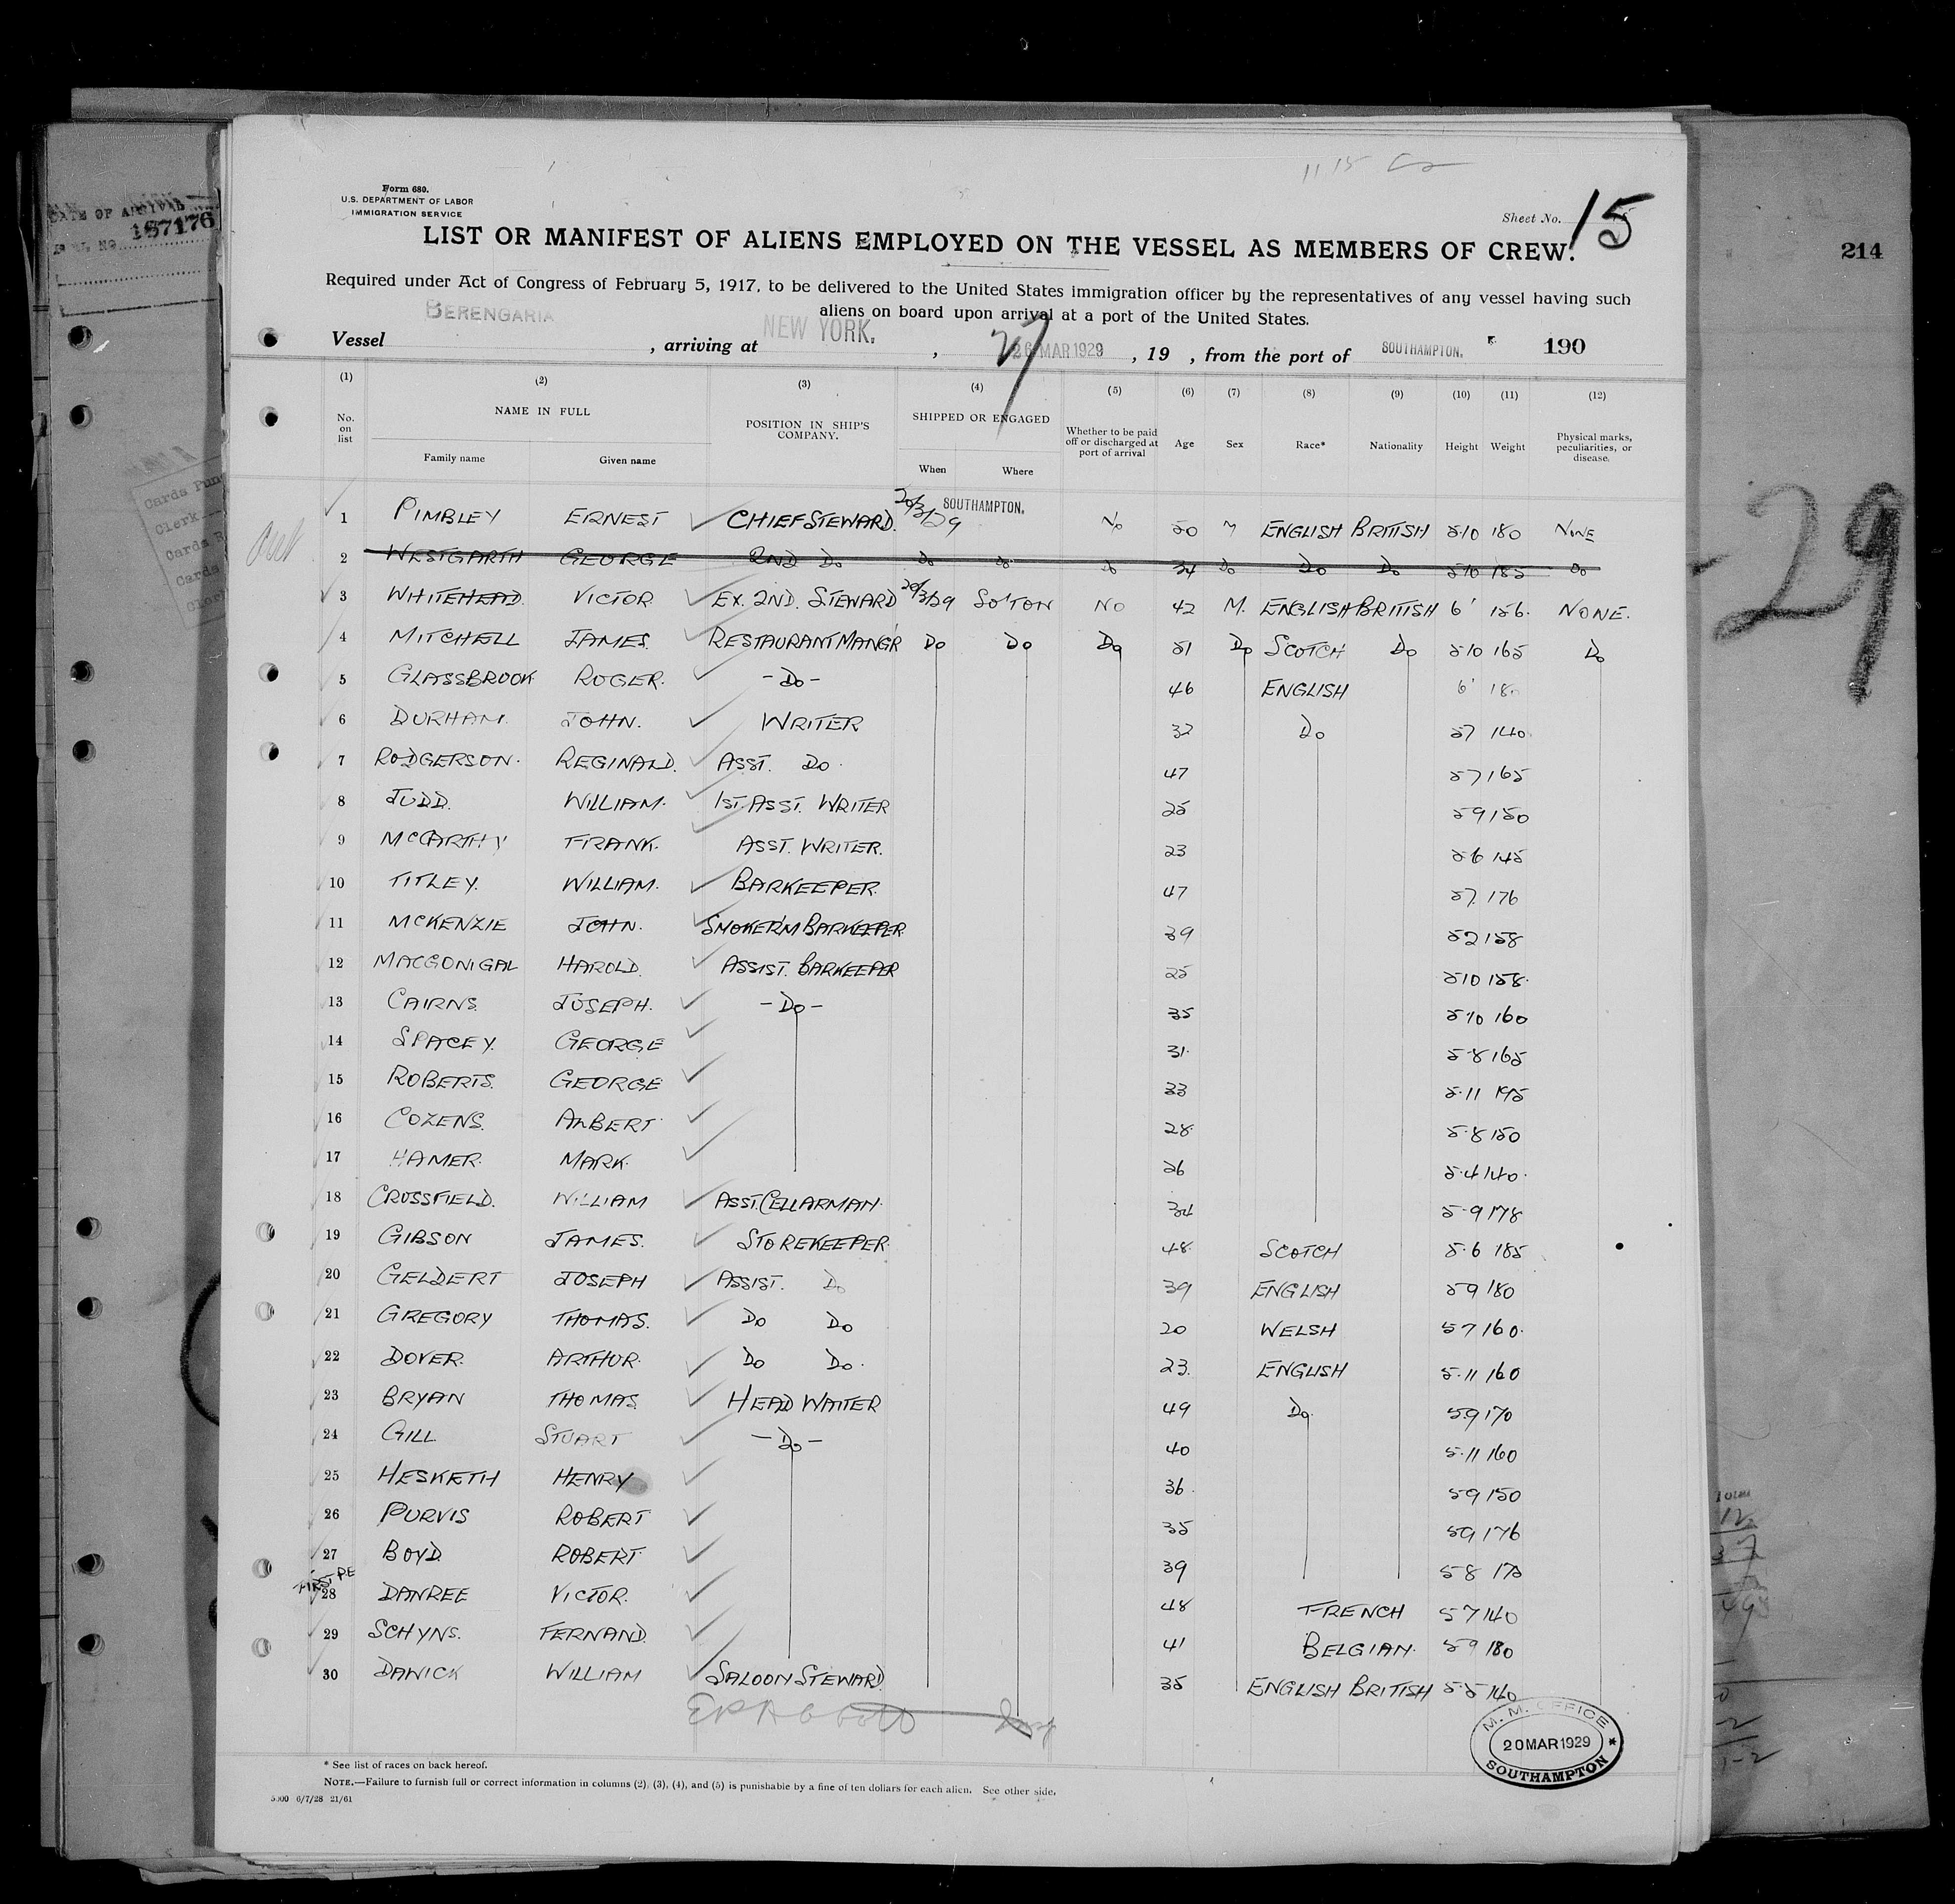 DATE OF ARRIVAL
187176
Form 680.
U.S. DEPARTMENT OF LABOR
IMMIGRATION SERVICE
11 15
Sheet No. 15
214
LIST OR MANIFEST OF ALIENS EMPLOYED ON THE VESSEL AS MEMBERS OF CREW.
Required under Act of Congress of February 5, 1917, to be delivered to the United States immigration officer by the representatives of any vessel having such
aliens on board upon arrival at a port of the United States.
Vessel BERENGARIA, arriving at NEW YORK., 27 26 MAR 1929, 19 , from the port of SOUTHAMPTON. 190
(1) (2) (3) (4) (5) (6) (7) (8) (9) (10) (11) (12)
No. on list NAME IN FULL POSITION IN SHIP'S COMPANY. SHIPPED OR ENGAGED Whether to be paid off or discharged at port of arrival Age Sex Race* Nationality Height Weight Physical marks, peculiarities, or disease.
Family name Given name When Where
1 PIMBLEY ERNEST CHIEF STEWARD. 20/3/29 SOUTHAMPTON. No 50 M ENGLISH BRITISH 510 180 NONE
Out 2 WESTGARTH GEORGE 2ND Do Do Do Do 34 Do Do Do 510 185 Do
3 WHITEHEAD. VICTOR EX. 2ND. STEWARD 20/3/29 SO'TON NO 42 M. ENGLISH BRITISH 6' 156. NONE.
4 MITCHELL JAMES. RESTAURANT MANG'R Do Do Do 51 Do SCOTCH Do 510 165 Do
5 GLASSBROOK ROGER. -Do- 46 ENGLISH 6'
6 DURHAM. JOHN. WRITER 32 Do 57 140
7 RODGERSON. REGINALD. ASST. Do. 47 57 165
8 JUDD. WILLIAM. 1ST. ASST. WRITER 25 59 150
9 McCARTHY FRANK. ASST. WRITER. 23 56 145
10 TITLEY. WILLIAM. BARKEEPER. 47 57. 176
11 McKENZIE JOHN. SMOKER'M BARKEEPER. 39 52 158
12 MACGONIGAL HAROLD. ASSIST. BARKEEPER 25 510 158.
13 CAIRNS. JOSEPH. -Do- 35 510 160
14 SPACEY. GEORGE 31. 5-8 165
15 ROBERTS. GEORGE 33 5.11 195
16 COZENS. ALBERT 28. 5.8 150
17 HAMER. MARK. 26 5.4 140.
18 CROSSFIELD. WILLIAM ASST. CELLARMAN. 34 5.9 178
19 GIBSON JAMES. STOREKEEPER. 48. SCOTCH 5.6 185
20 GELDERT JOSEPH ASSIST. Do 39 ENGLISH 59 180
21 GREGORY THOMAS. Do Do 20 WELSH 57 160.
22 DOVER. ARTHUR. Do Do. 23. ENGLISH 5.11 160
23 BRYAN THOMAS. HEAD WAITER 49 Do. 59 170
24 GILL. STUART -Do- 40 5.11 160
25 HESKETH HENRY 36. 59 150
26 PURVIS ROBERT 35 59 176
27 BOYD. ROBERT 39 58 170
28 DANREE VICTOR. 48 FRENCH 57 140
29 SCHYNS. FERNAND. 41 BELGIAN. 59 180
30 DAWICK WILLIAM SALOON STEWARD. 35 ENGLISH BRITISH 55 140
M. M. OFFICE
20 MAR 1929
SOUTHAMPTON
* See list of races on back hereof.
NOTE.—Failure to furnish full or correct information in columns (2), (3), (4), and (5) is punishable by a fine of ten dollars for each alien. See other side.
5000 6/7/28 21/61
-29